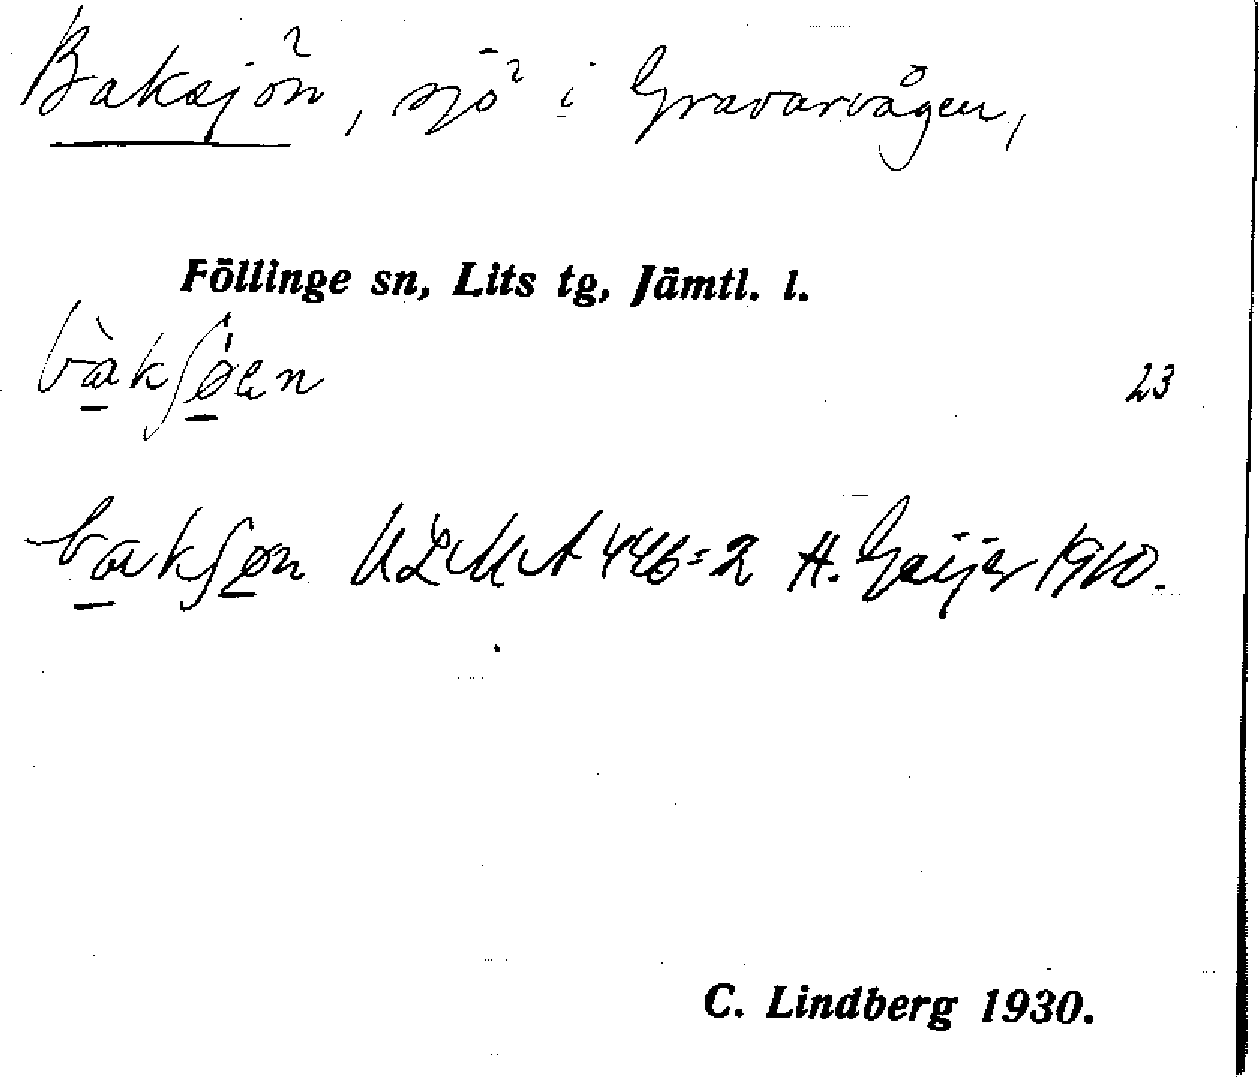 Baksjön, sjö i Gravarvågen,
Föllinge sn, Lits tg, Jämtl. l.
bàkʃøen
23
bakʃøn ULMA 446:2 H. Geijer 1910.
C. Lindberg 1930.